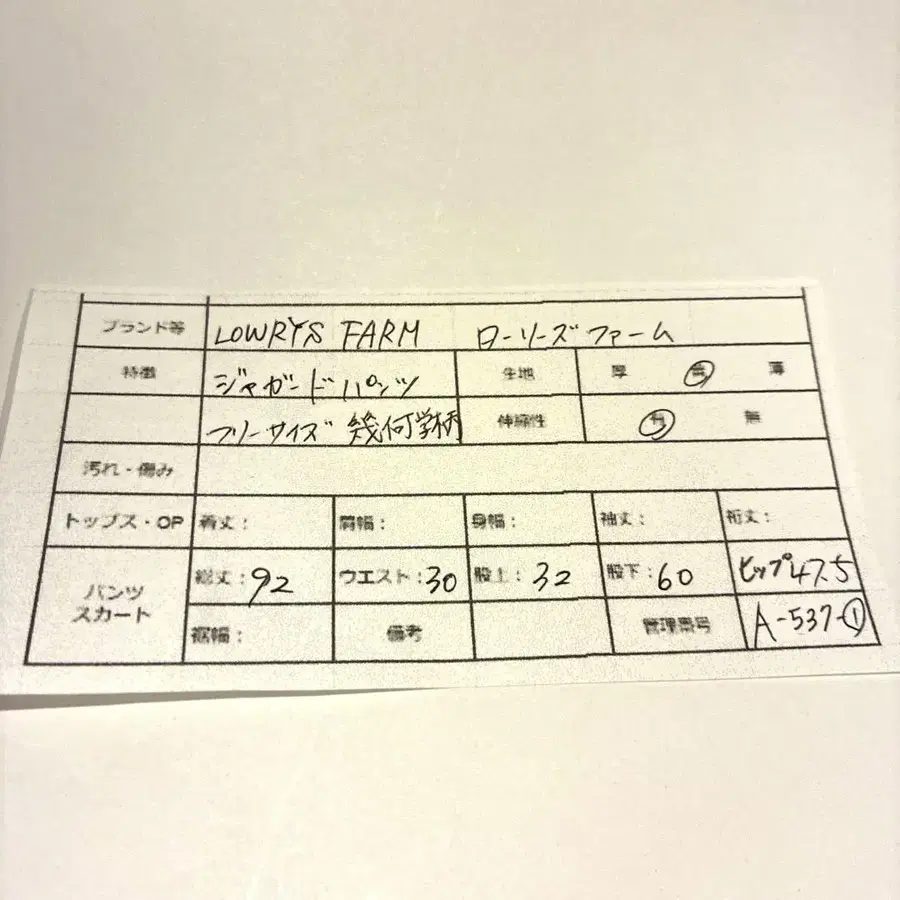 ブランド等 LOWRYS FARM ローリーズファーム
特徴 ジャガードパンツ 生地 厚 普 薄
フリーサイズ 幾何学柄 伸縮性 有 無
汚れ・傷み
トップス・OP 着丈: 肩幅: 身幅: 袖丈: 裄丈:
パンツ スカート 総丈:92 ウエスト:30 股上:32 股下:60 ヒップ47.5
裾幅: 備考 管理番号 A-537-①